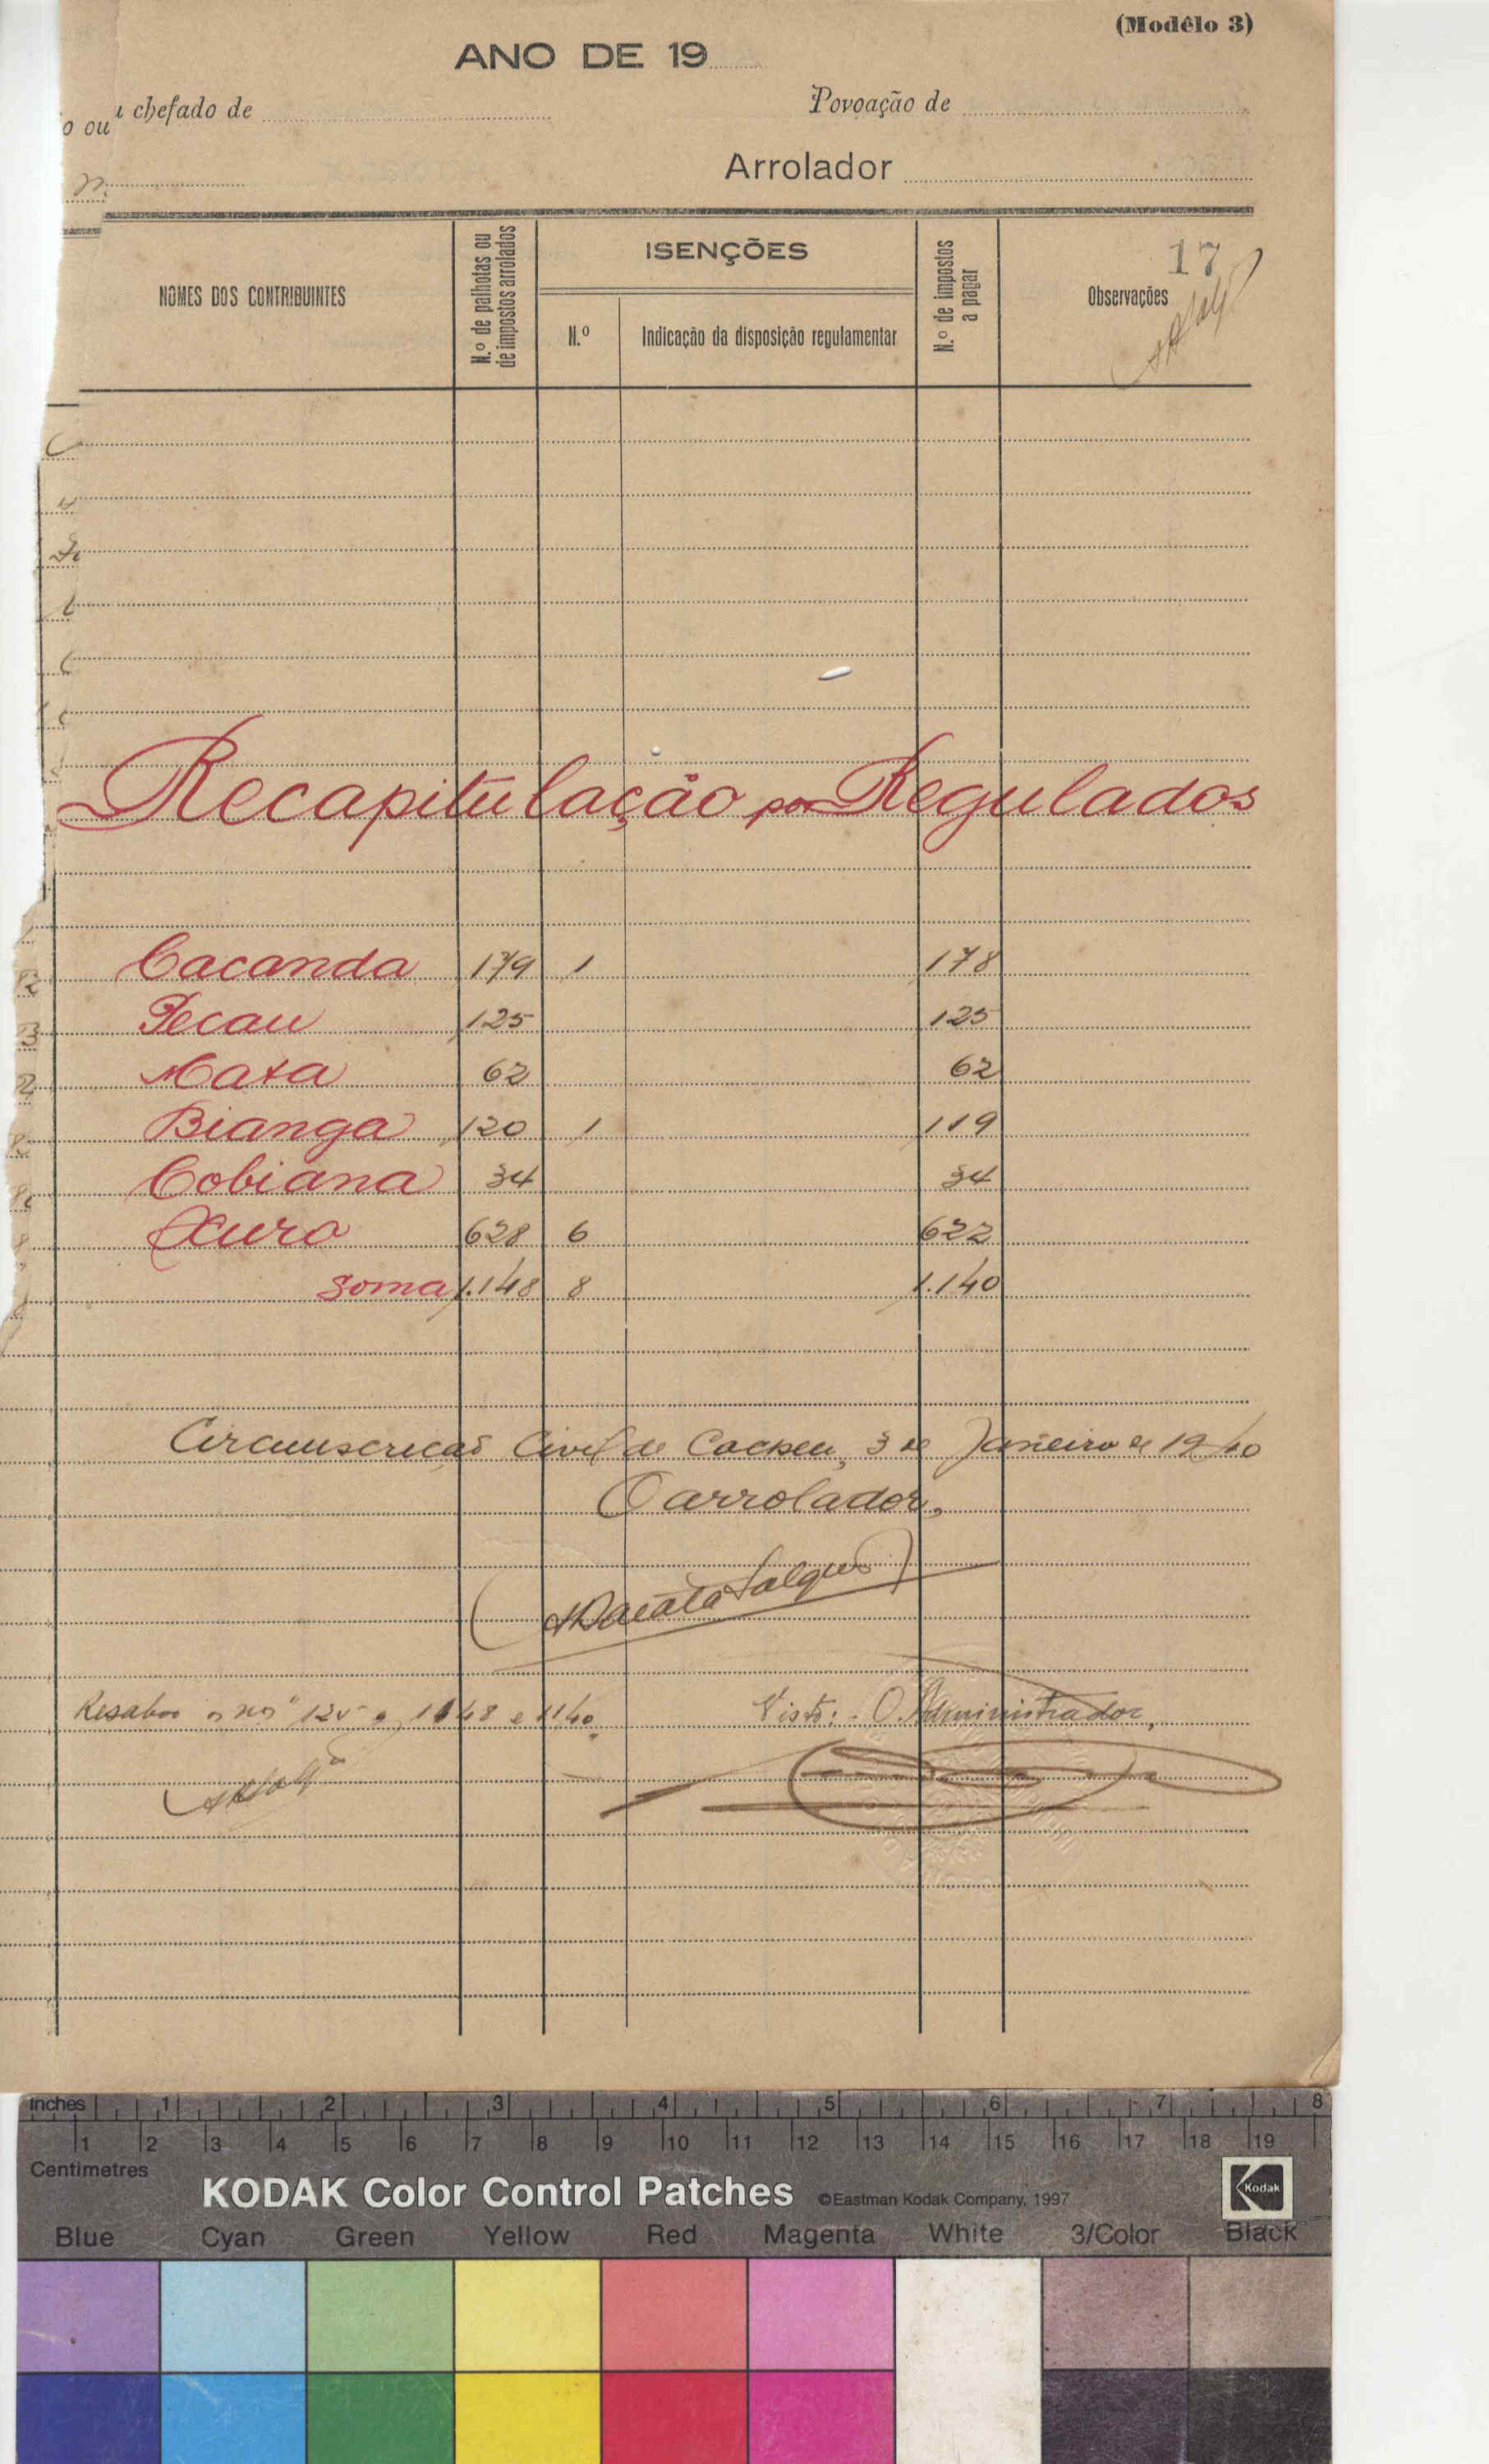 (Modêlo 3)
ANO DE 19
o ou
chefado de
Povoação de
Arrolador
NOMES DOS CONTRIBUINTES
N.º de palhotas ou
de impostos arrolados
ISENÇÕES
N.º
Indicação da disposição regulamentar
N.º de impostos
a pagar
Observações
17
Recapitulação por Regulados
Cacanda 179 1 178
Pecau 125 125
Mata 62 62
Bianga 120 1 119
Cobiana 34 34
Churo 628 6 622
Soma 1.148 8 1.140
Circunscrição Civil de Cacheu, 3 de Janeiro de 1940
O arrolador,
Resalvo os nos 125 e 1148 e 1140.
Visto: - O Administrador,
inches 1 2 3 4 5 6 7 8
1 2 3 4 5 6 7 8 9 10 11 12 13 14 15 16 17 18 19
Centimetres
KODAK Color Control Patches ©Eastman Kodak Company, 1997 Kodak
Blue Cyan Green Yellow Red Magenta White 3/Color Black